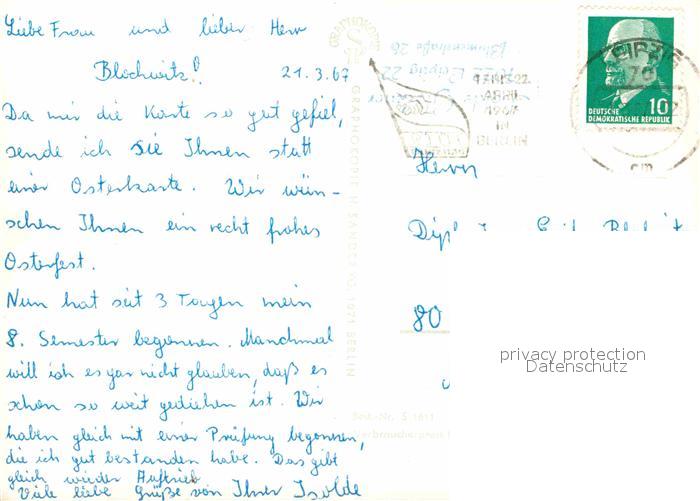 Liebe Frau und lieber Herr
Blochwitz!
21.3.67
Da mir die Karte so gut gefiel,
sende ich Sie Ihnen statt
einer Osterkarte. Wir wün-
schen Ihnen ein recht frohes
Osterfest.
Nun hat seit 3 Tagen mein
8. Semester begonnen. Manchmal
will ich es gar nicht glauben, daß es
schon so weit gediehen ist. Wir
haben gleich mit einer Prüfung begonnen,
die ich gut bestanden habe. Das gibt
gleich wieder Auftrieb
Viele liebe Grüße von Ihrer Isolde
GRAPHOKOPIE
GRAPHOKOPIE H. SANDER KG, 1071 BERLIN
Best.-Nr. S 1611
Verbraucherpreis
Leipzig 22
Blumenstraße 26
17. BIS 22.
APRIL
1967
IN
BERLIN
LEIPZIG
DEUTSCHE
DEMOKRATISCHE REPUBLIK
10
Herrn
Dipl
80
privacy protection
Datenschutz